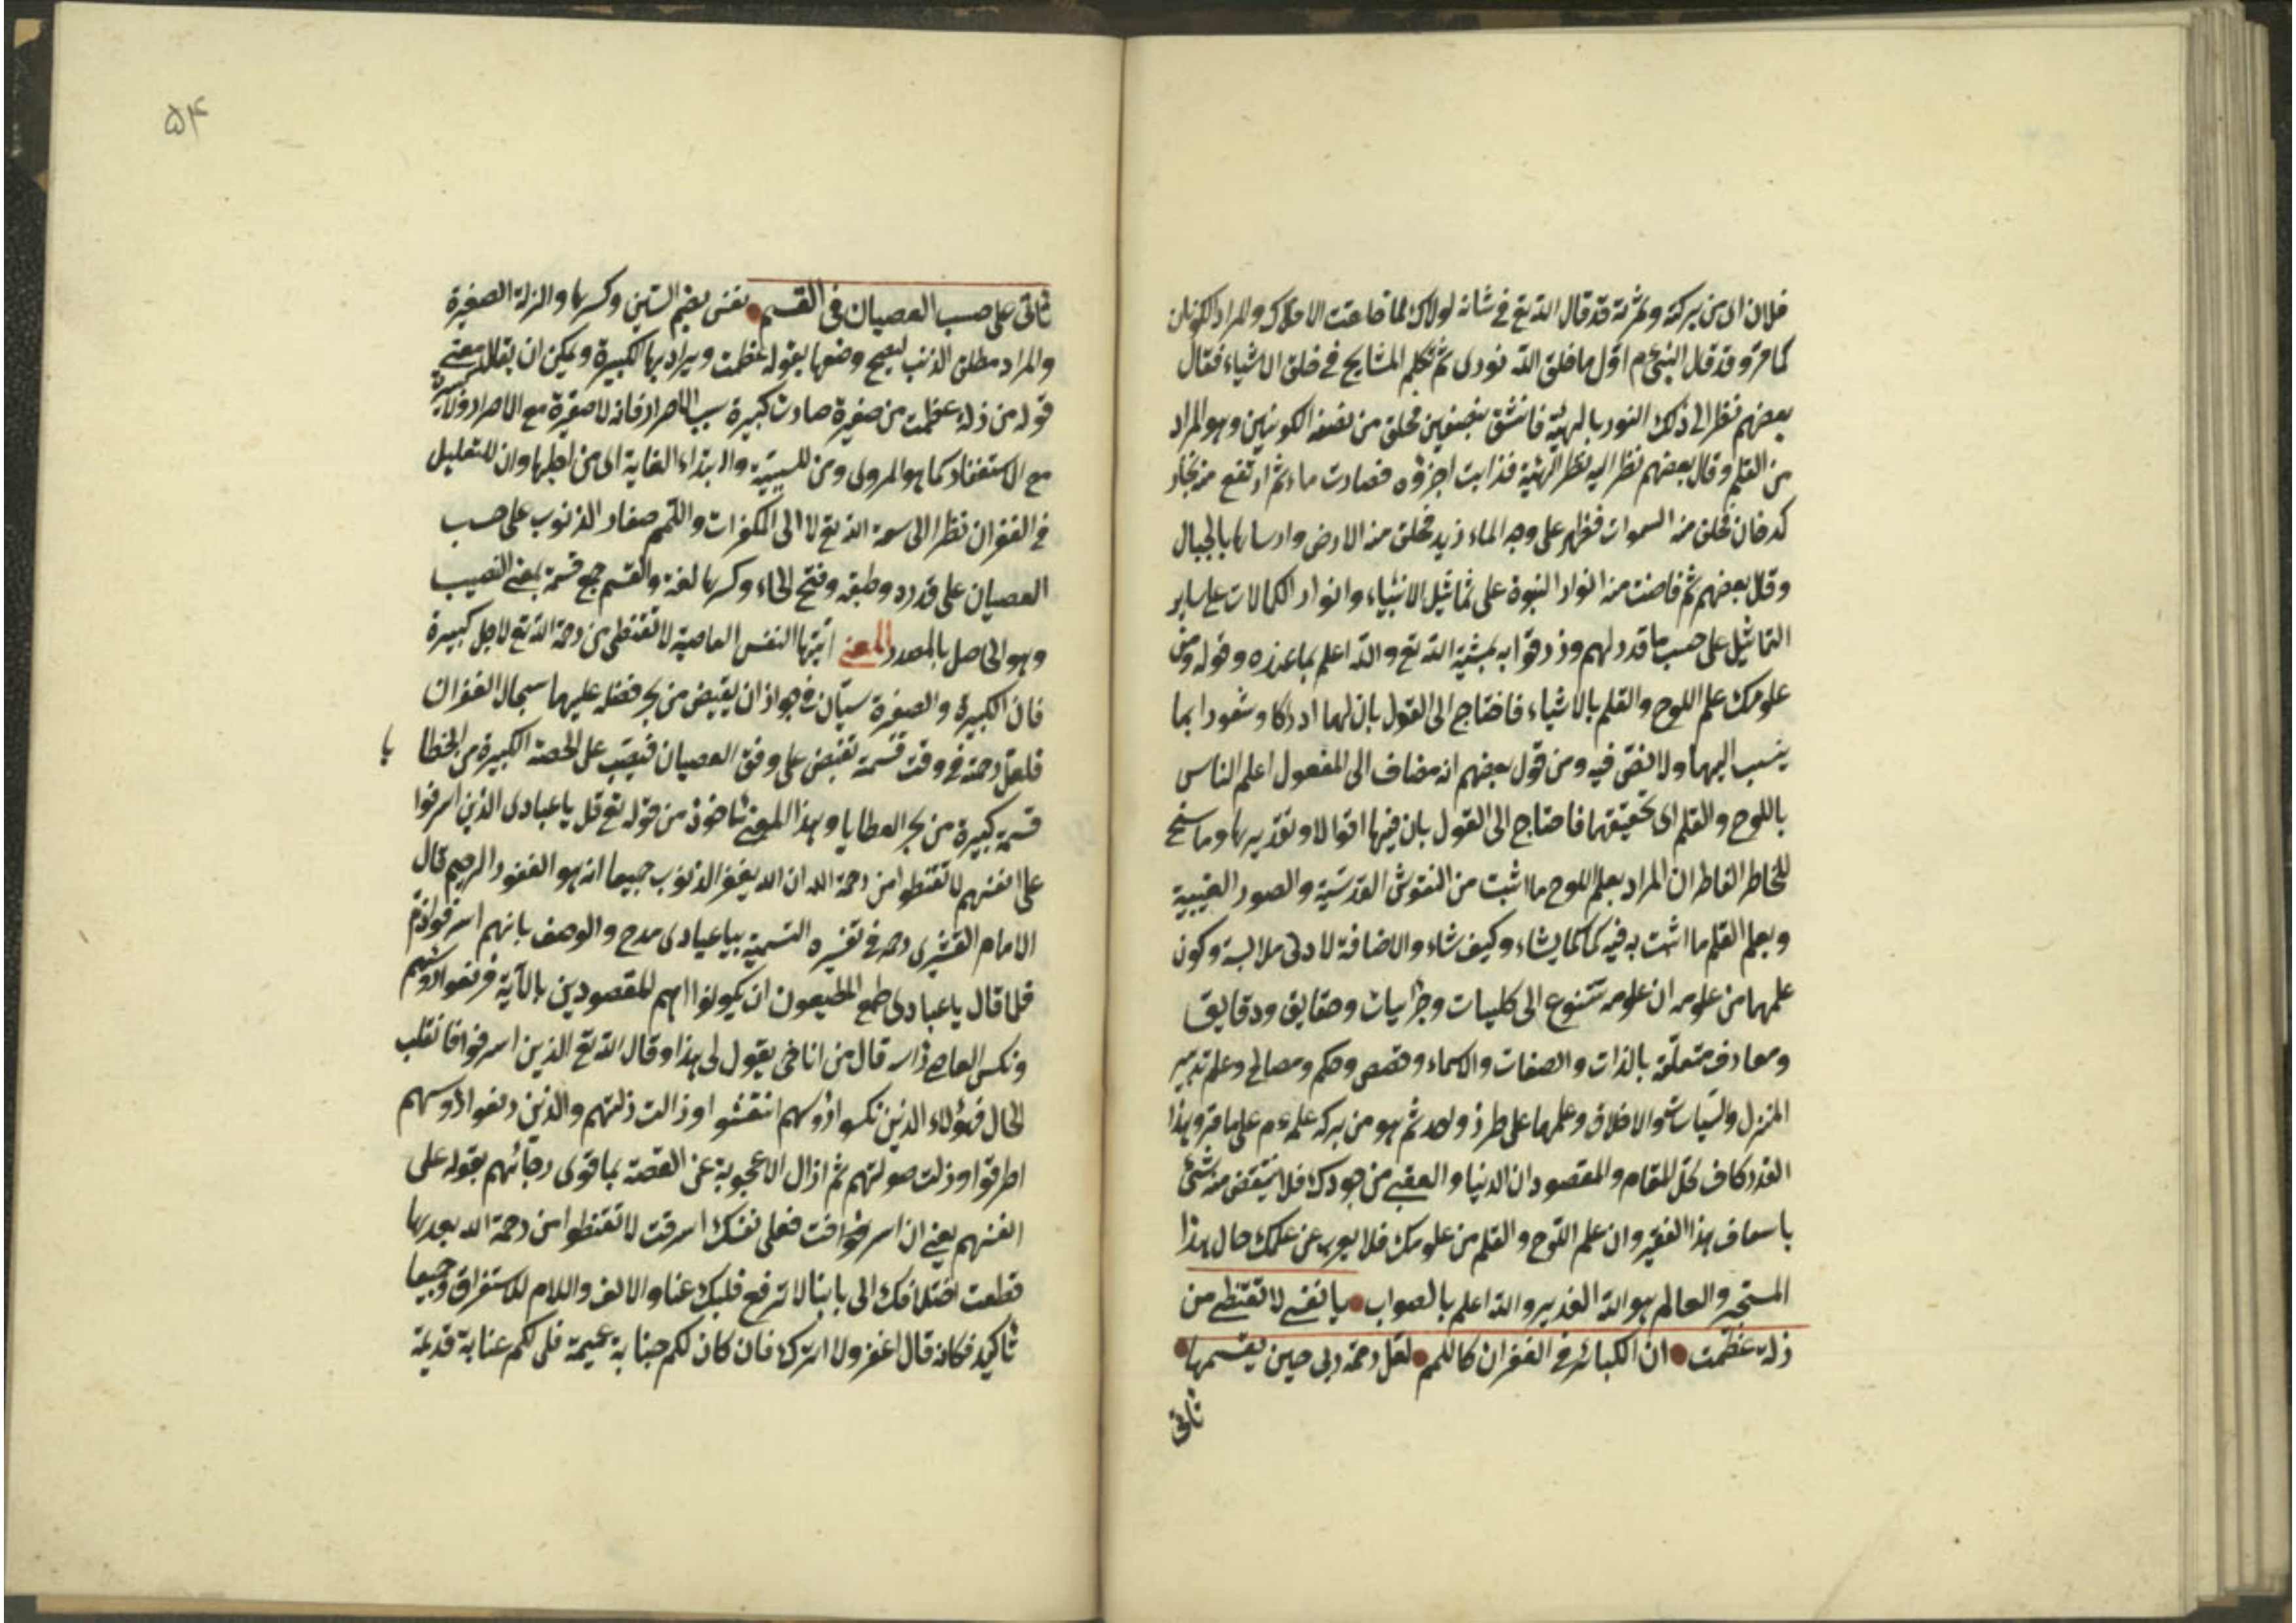 فلان اى من بركته وثمرته قد قال الله تع فى شانه لولاك لما خلقت الافلاك والمراد الكونان
كما مر وقد قال النبى عم اول ما خلق الله نورى ثم تكلم المشايخ فى خلق الاشياء فقال
بعضهم نظر الى ذلك النور بالهيبة فانشق بنصفين فخلق من نصفه الكونين وهو المراد
من القلم وقال بعضهم نظر اليه نظر الهيبة فذابت اجزؤه فصارت ماء ثم ارتفع منه بخار
كدخان فخلق منه السموات فظهر على وجه الماء زبد فخلق منه الارض وارساها بالجبال
وقال بعضهم ثم فاضت منه انوار النبوة على تماثيل الانبياء وانوار الكمالات على ساير
التماثيل على حسب ما قدر لهم ورزقوا به بمشية الله تع والله اعلم بما عنده وقوله ومن
علومك علم اللوح والقلم بالاشياء فاحتاج الى القول بان لهما ادراكا وشعورا بما
ينسب اليهما ولا نص فيه ومن قول بعضهم انه مضاف الى المفعول اعلم الناس
باللوح والقلم اى تحقيقهما فاحتاج الى القول بان فيها اقوالا وتقديرها وما سنح
للخاطر الفاطر ان المراد بعلم اللوح ما اثبت من النقوش القدسية والصور الغيبية
وبعلم القلم ما اثبت به فيه كما كما يشاء وكيف شاء والاضافة لادنى ملابسة وكون
علمهما من علومه ان علومه تتنوع الى كليات وجزئيات وحقايق ودقايق
ومعارف متعلقة بالذات والصفات والاسماء وقصص وحكم ومصالح وعلم تدبير
المنزل والسياسة والاخلاق وعلمهما على طرز واحد ثم هو من بركة علمه عم على ما مر وهذا
القدر كاف لحل المقام والمقصود ان الدنيا والعقبى من جودك فلا ينتقص منه شئ
باسعاف هذا الفقير وان علم اللوح والقلم من علومك فلا يعزب عن علمك حال هذا
المستجير والعالم هو الله القدير والله اعلم بالصواب يا نفس لا تقنطى من
زلة عظمت ان الكبائر فى الغفران كاللمم لعل رحمة ربى حين يقسمها
تاتى
۵۴
تاتى على حسب العصيان فى القسم نفس بضم السين وكسرها والزلة الصغيرة
والمراد مطلق الذنب ليصح وصفها بقوله عظمت ويراد بها الكبيرة ويمكن ان يقال معنى
قوله من زلة عظمت من صغيرة صارت كبيرة بسبب الاصرار فانه لا صغيرة مع الاصرار ولا كبيرة
مع الاستغفار كما هو المروى ومن للسببية والابتداء الغاية اى من اجلها وان للتعليل
فى الغفران نظرا الى سعة الله تع لا الى المكفرات واللمم صغار الذنوب على حسب
العصيان على قدره وطبقه وفتح الحاء وكسرها لغة والقسم جمع قسمة بمعنى النصيب
وهو الحاصل بالمصدر المعنى ايتها النفس العاصية لا تقنطى من رحمة الله تع لاجل كبيرة
فان الكبيرة والصغيرة سيان فى جواز ان يفيض من بحر فضله عليهما سجال الغفران
فلعل رحمة فى وقت قسمة تفيض على وفق العصيان فيصب على الحصة الكبيرة من الخطا يا
قسمة كبيرة من بحر العطايا وهذا المعنى ماخوذ من قوله تع قل يا عبادى الذين اسرفوا
على انفسهم لا تقنطوا من رحمة الله ان الله يغفر الذنوب جميعا انه هو الغفور الرحيم قال
الامام القشيرى رحه فى تفسيره التسمية بيا عبادى مدح والوصف بانهم اسرفوا ذم
فلما قال يا عبادى طمع المطيعون ان يكونوا هم المقصودين بالآية فرفعوا رؤسهم
ونكس العاصى رأسه قال من انا حتى يقول لى هذا وقال الله تع الذين اسرفوا فانقلب
الحال فهؤلاء الذين نكسوا رؤسهم انتعشوا وزالت ذلتهم والذين رفعوا رؤسهم
اطرقوا وزلت صولتهم ثم ازال الاعجوبة عن القصة بما قوى رجائهم بقوله على
انفسهم يعنى ان اسرفت فعلى نفسك اسرفت لا تقنطوا من رحمة الله بعد ما
قطعت اختلافك الى بابنا لا ترفع قلبك عنا والالف واللام للاستغراق وجميعا
تاكيد فكانه قال اغفر ولا اترك فان كان لكم جناية عميمة فلى لكم عناية قديمة